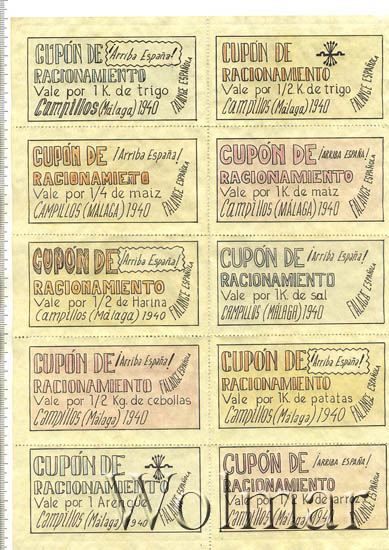 CUPÓN DE
¡Arriba España!
RACIONAMIENTO
Vale por 1 K. de trigo
Campillos (Málaga) 1940
FALANGE ESPAÑOLA
CUPÓN DE
RACIONAMIENTO
Vale por 1/2 K. de trigo
Campillos (Málaga) 1940
FALANGE ESPAÑOLA
CUPÓN DE
¡Arriba España!
RACIONAMIENTO
Vale por 1/4 de maiz
CAMPILLOS (MÁLAGA) 1940
FALANGE ESPAÑOLA
CUPÓN DE
¡ARRIBA ESPAÑA!
RACIONAMIENTO
Vale por 1K. de maiz
Campillos (MÁLAGA) 1940
FALANGE ESPAÑOLA
CUPÓN DE
¡Arriba España!
RACIONAMIENTO
Vale por 1/2 de Harina
Campillos (Málaga) 1940
FALANGE ESPAÑOLA
CUPÓN DE
¡Arriba España!
RACIONAMIENTO
Vale por 1K. de sal
CAMPILLOS (MÁLAGA) 1940
ESPAÑOLA
CUPÓN DE
¡Arriba España!
RACIONAMIENTO
Vale por 1/2 Kg. de cebollas
Campillos (Málaga) 1940
FALANGE ESPAÑOLA
CUPÓN DE
¡Arriba España!
RACIONAMIENTO
Vale por 1K. de patatas
Campillos (Málaga) 1940
FALANGE ESPAÑOLA
CUPÓN DE
RACIONAMIENTO
Vale por 1 Arenque
Campillos (Málaga) 1940
FALANGE ESPAÑOLA
CUPÓN DE
¡ARRIBA ESPAÑA!
RACIONAMIENTO
Vale por 1/2 K. de arroz
Campillos (Málaga) 1940
FALANGE ESPAÑOLA
Wolmar